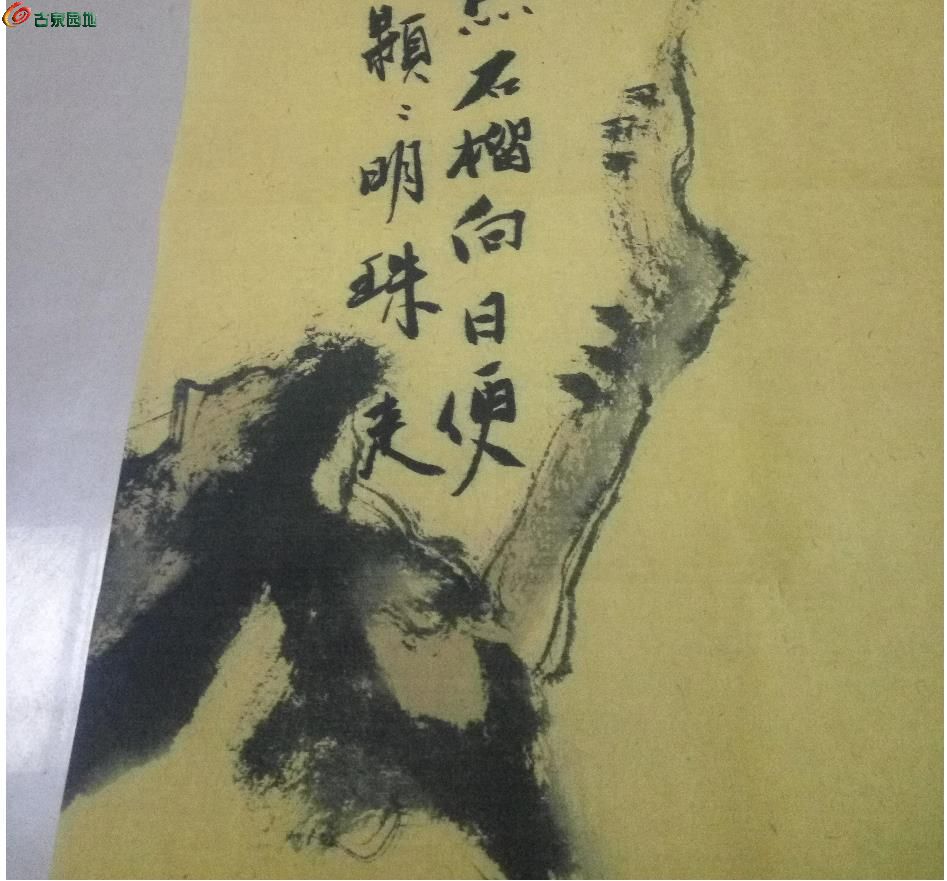 古泉园地
石榴向日便
颗〻明珠走